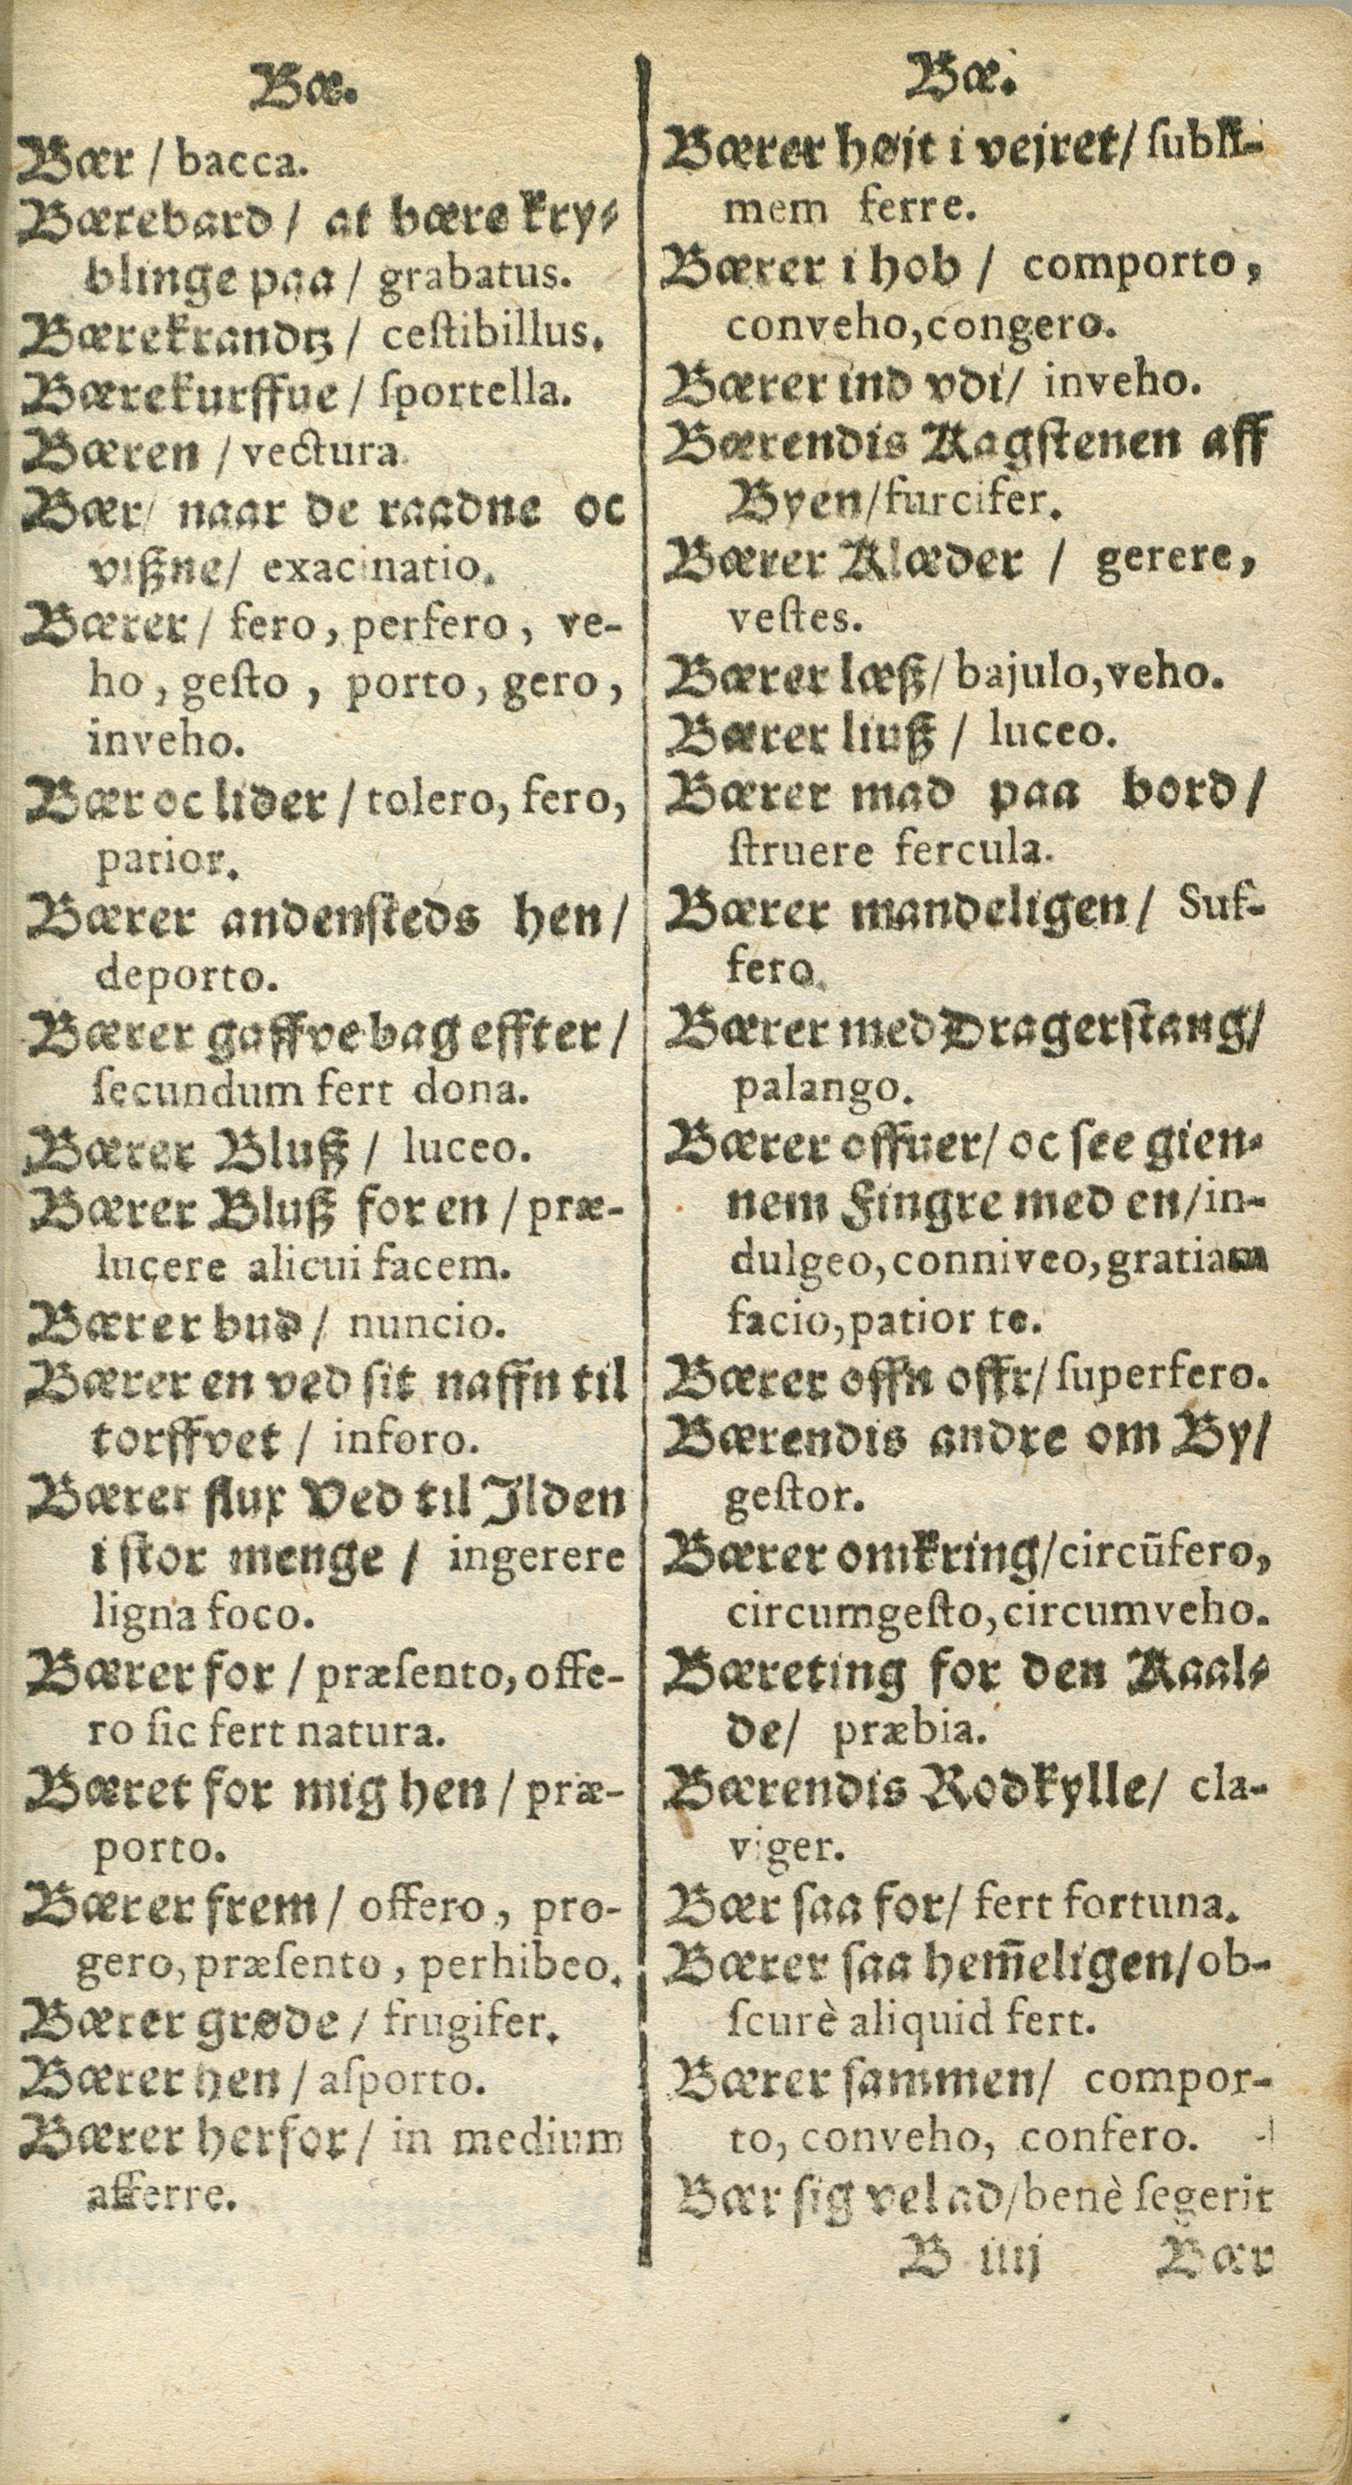 Bæ.
Bær / bacca.
Bærebard / at bære kry-
blinge paa / grabatus.
Bærekrandtz / ceſtibillus.
Bærekurffue / ſportella.
Bæren / vectura.
Bær / naar de raadne oc
viſzne / exacinatio.
Bærer / fero, perfero, ve-
ho, geſto, porto, gero,
inveho.
Bær oc lider / tolero, fero,
patior.
Bærer andenſteds hen /
deporto.
Bærer gaffve bag effter /
ſecundum fert dona.
Bærer Bluſz / luceo.
Bærer Bluſz for en / præ-
lucere alicui facem.
Bærer bud / nuncio.
Bærer en ved ſit naffn til
torffvet / inforo.
Bærer flux Ved til Jlden
i ſtor menge / ingerere
ligna foco.
Bærer for / præſento, offe-
ro ſic fert natura.
Bæret for mig hen / præ-
porto.
Bærer frem / offero, pro-
gero, præſento, perhibeo.
Bærer grøde / frugifer.
Bærer hen / aſporto.
Bærer herfor / in medium
afferre.
Bæ.
Bærer højt i vejret / ſubli-
mem ferre.
Bærer i hob / comporto,
conveho, congero.
Bærer ind vdi / inveho.
Bærendis Kagſtenen aff
Byen / furcifer.
Bærer Klæder / gerere,
veſtes.
Bærer læſz / bajulo, veho.
Bærer liuſz / luceo.
Bærer mad paa bord /
ſtruere fercula.
Bærer mandeligen / Suf-
fero.
Bærer med Dragerſtang /
palango.
Bærer offuer / oc ſee gien-
nem Fingre med en / in-
dulgeo, conniveo, gratiam
facio, patior te.
Bærer offn offr / ſuperfero.
Bærendis andre om By /
geſtor.
Bærer omkring / circūfero,
circumgeſto, circumveho.
Bæreting for den Kaal-
de / præbia.
Bærendis Rodkylle / cla-
viger.
Bær ſaa for / fert fortuna.
Bærer ſaa hem̄eligen / ob-
ſcurè aliquid fert.
Bærer ſammen / compor-
to, conveho, confero.
Bær ſig vel ad / benè ſegerit
B iiij Bær